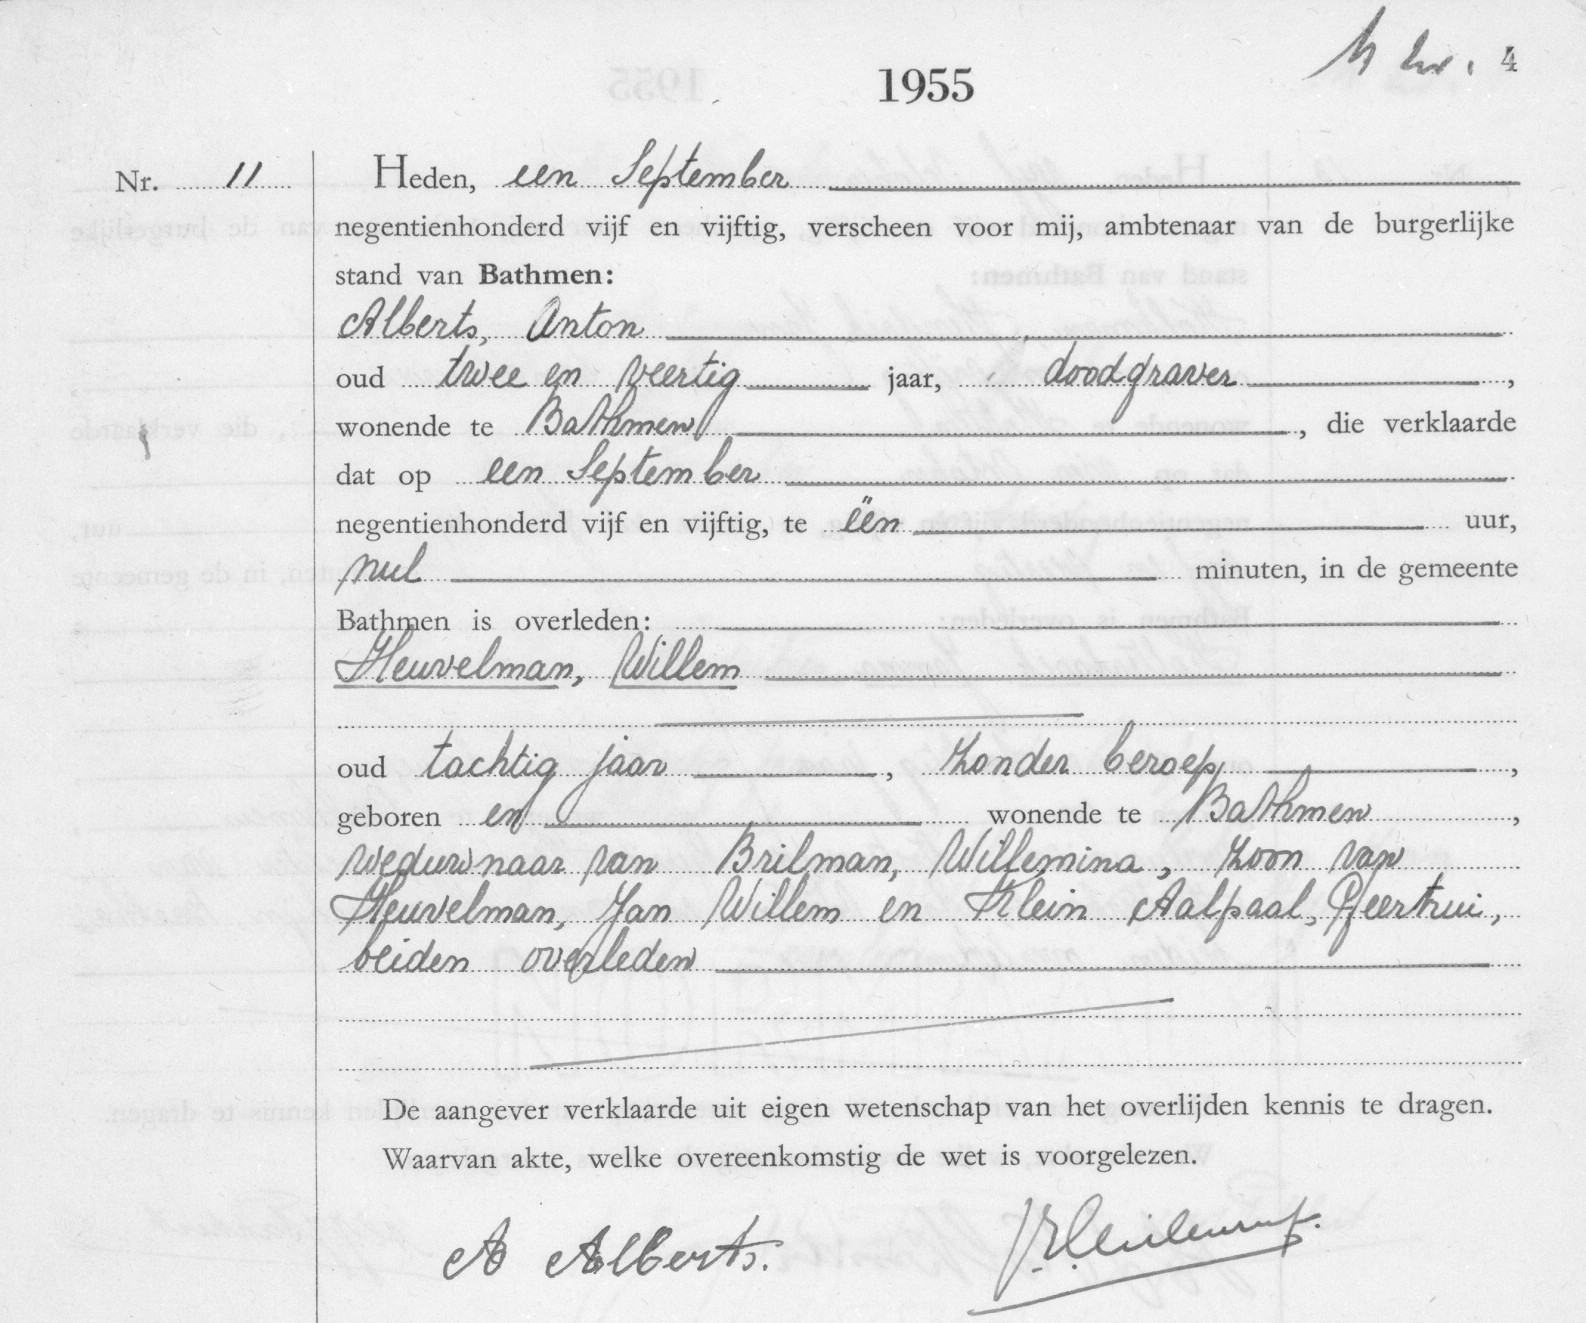 4
1955
Nr. 11
Heden, een September
negentienhonderd vijf en vijftig, verscheen voor mij, ambtenaar van de burgerlijke
stand van Bathmen:
Alberts, Anton
oud twee en veertig jaar, doodgraver,
wonende te Bathmen, die verklaarde
dat op een September
negentienhonderd vijf en vijftig, te ëën uur,
nul minuten, in de gemeente
Bathmen is overleden:
Heuvelman, Willem
oud tachtig jaar, zonder beroep,
geboren en wonende te Bathmen,
weduwnaar van Brilman, Willemina, zoon van
Heuvelman, Jan Willem en Klein Aalpaal, Geertrui,
beiden overleden
De aangever verklaarde uit eigen wetenschap van het overlijden kennis te dragen.
Waarvan akte, welke overeenkomstig de wet is voorgelezen.
A Alberts.